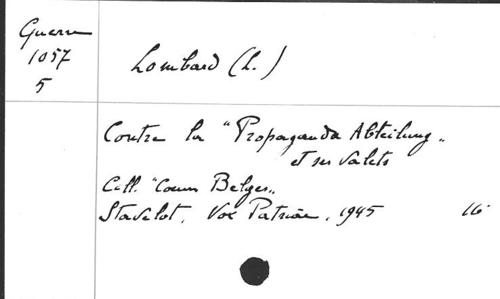 Guerre
1057
5
Lombard (L.)
Contre la "Propaganda Abteilung"
et ses valets
Coll. "Coeurs Belges"
Stavelot, Vox Patriae, 1945 16°